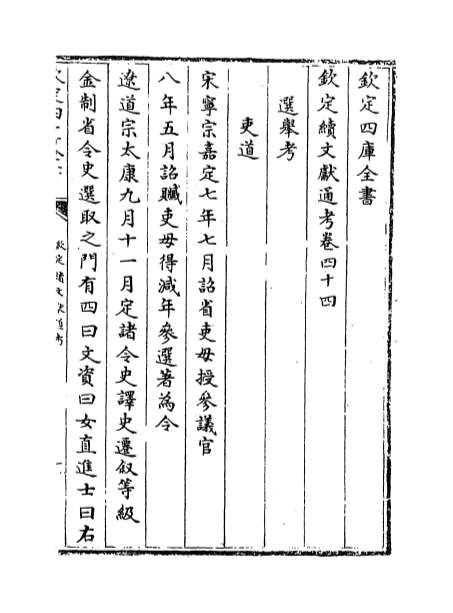 欽定四庫全書
欽定續文獻通考卷四十四
選舉考
吏道
宋寧宗嘉定七年七月詔省吏毋授參議官
八年五月詔贓吏毋得減年參選著為令
遼道宗太康九月十一月定諸令史譯史遷叙等級
金制省令史選取之門有四曰文資曰女直進士曰右
欽定四庫全書
欽定續文獻通考
一